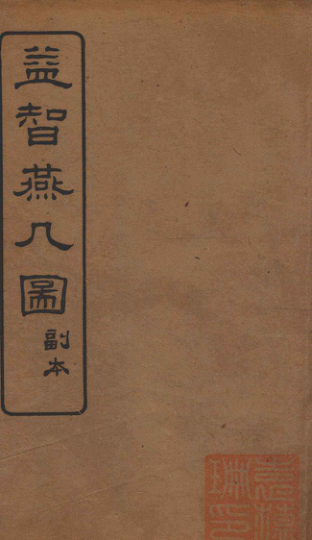 益智燕几圖
副本